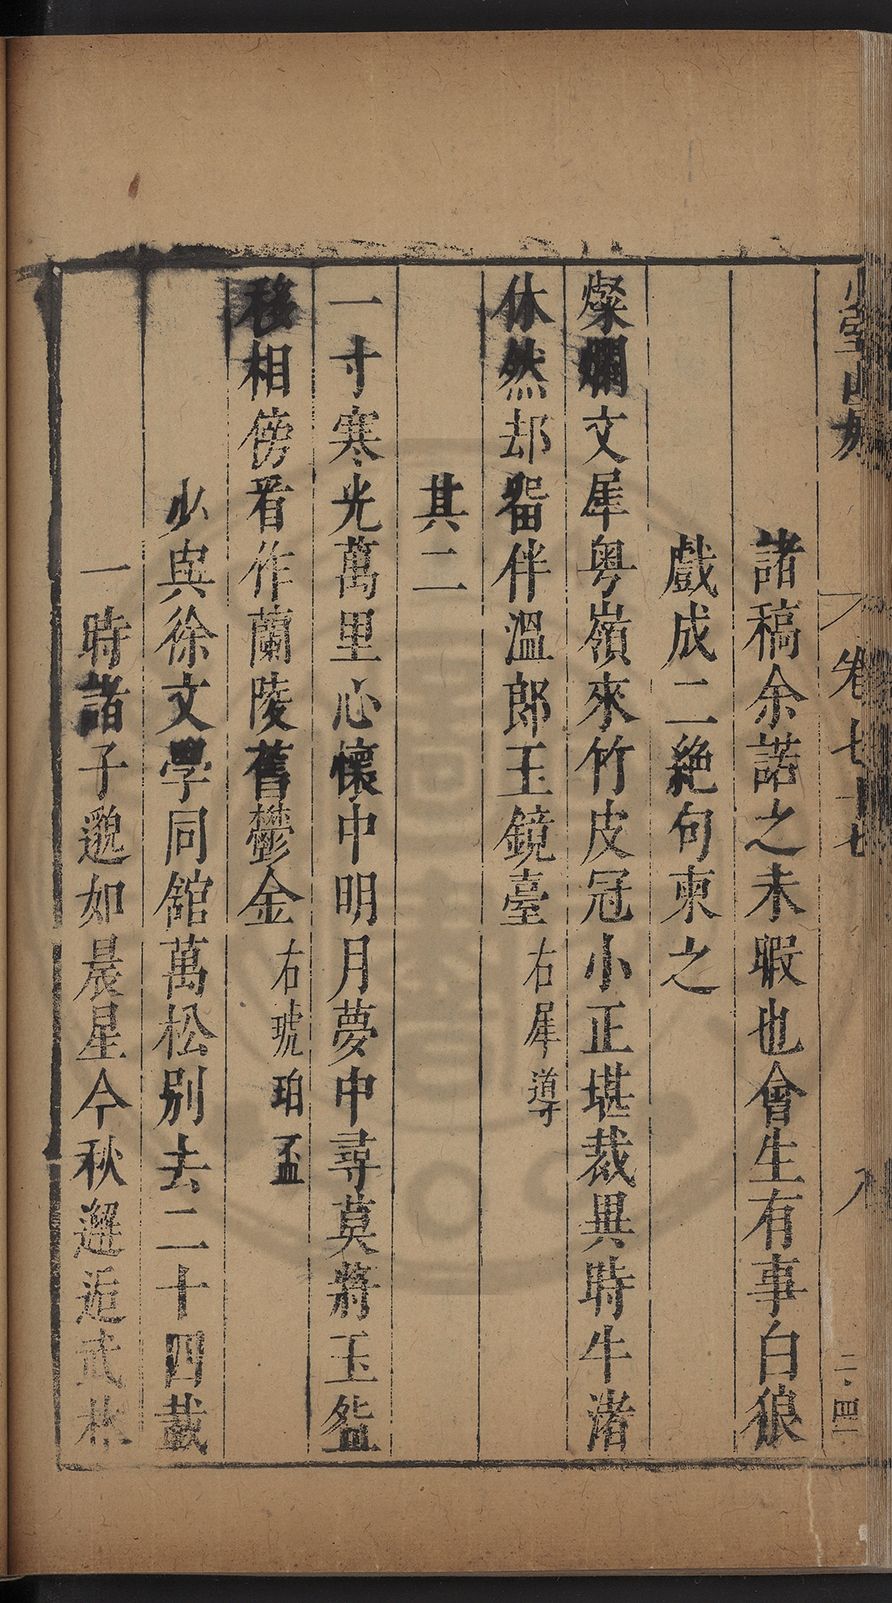 卷七十七
八
諸稿余諾之未暇也會生有事白狼
戲成二絶句柬之
燦爛文犀粤嶺來竹皮冠小正堪裁異時牛渚
休然却畱伴溫郎玉鏡臺右犀導
其二
一寸寒光萬里心懷中明月夢中尋莫將玉斝
移相傍看作蘭陵舊鬱金右琥珀盃
少與徐文學同舘萬松别去二十四載
一時諸子邈如晨星今秋邂逅武林